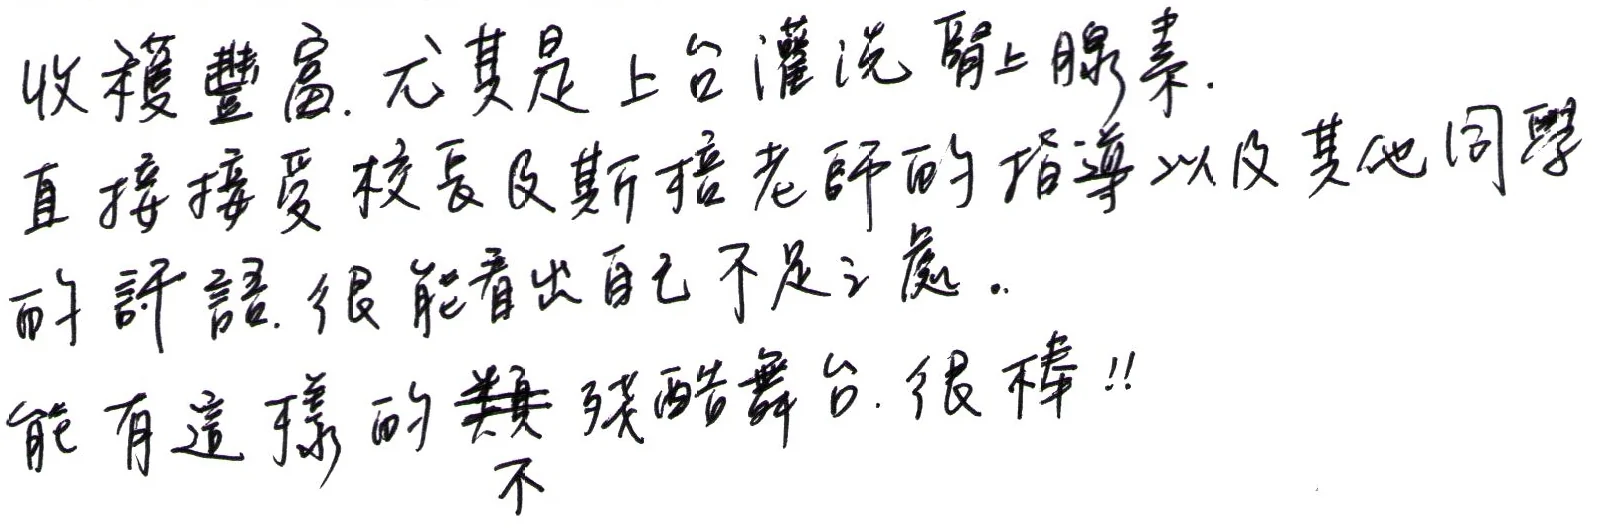 收穫豐富.尤其是上台灌洗腎上腺素.
直接接受校長及斯棓老師的指導以及其他同學
的評語.很能看出自己不足之處。
能有這樣的殘酷舞台.很棒!!
不